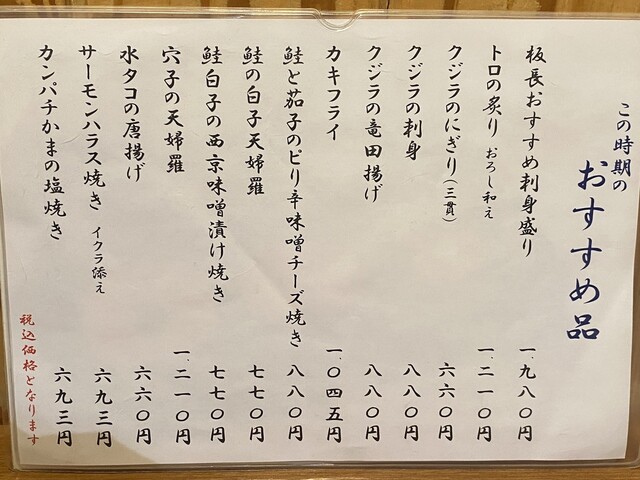 この時期の
おすすめ品
板長おすすめ刺身盛り 一、九八〇円
トロの炙り おろし和え 一、二一〇円
クジラのにぎり(三貫) 六六〇円
クジラの刺身 八八〇円
クジラの竜田揚げ 八八〇円
カキフライ 一、〇四五円
鮭と茄子のピリ辛味噌チーズ焼き 八八〇円
鮭の白子天婦羅 七七〇円
鮭白子の西京味噌漬け焼き 七七〇円
穴子の天婦羅 一、二一〇円
水タコの唐揚げ 六六〇円
サーモンハラス焼き イクラ添え 六九三円
カンパチかまの塩焼き 六九三円
税込価格となります